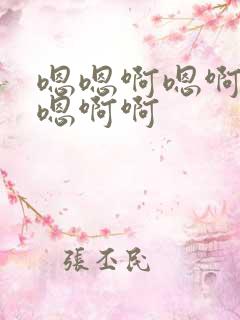 嗯嗯啊嗯啊
嗯啊啊
張丕民